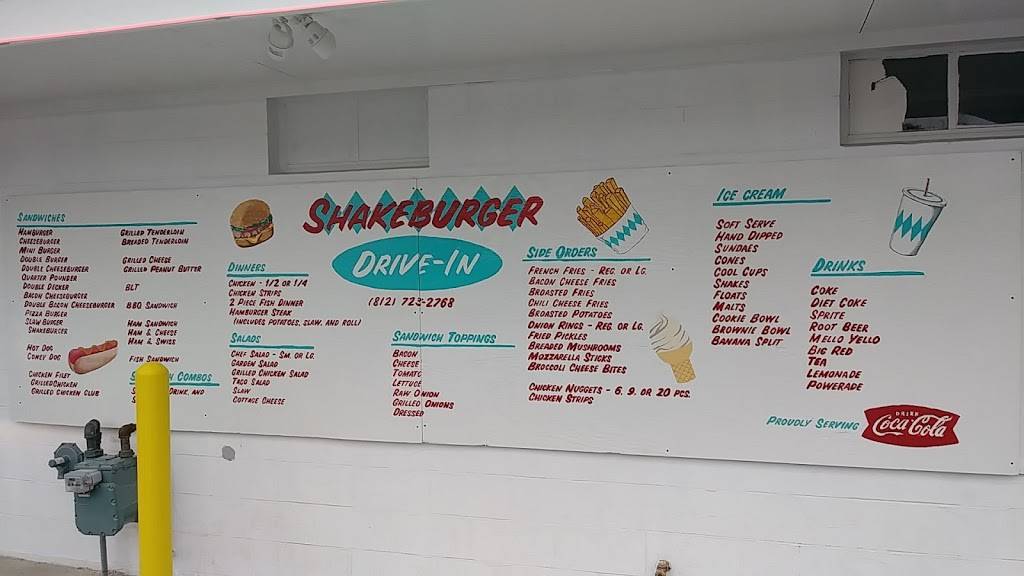 SHAKEBURGER
DRIVE-IN
(812) 723-2768
SANDWICHES
HAMBURGER
CHEESEBURGER
MINI BURGER
DOUBLE BURGER
DOUBLE CHEESEBURGER
QUARTER POUNDER
DOUBLE DECKER
BACON CHEESEBURGER
DOUBLE BACON CHEESEBURGER
PIZZA BURGER
SLAW BURGER
SHAKEBURGER
HOT DOG
CONEY DOG
CHICKEN FILET
GRILLED CHICKEN
GRILLED CHICKEN CLUB
GRILLED TENDERLOIN
BREADED TENDERLOIN
GRILLED CHEESE
GRILLED PEANUT BUTTER
BLT
BBQ SANDWICH
HAM SANDWICH
HAM & CHEESE
HAM & SWISS
FISH SANDWICH
COMBOS
DRINK, AND
DINNERS
CHICKEN - 1/2 OR 1/4
CHICKEN STRIPS
2 PIECE FISH DINNER
HAMBURGER STEAK
(INCLUDES POTATOES, SLAW, AND ROLL)
SALADS
CHEF SALAD - SM. OR LG.
GARDEN SALAD
GRILLED CHICKEN SALAD
TACO SALAD
SLAW
COTTAGE CHEESE
SANDWICH TOPPINGS
BACON
CHEESE
TOMATO
LETTUCE
RAW ONION
GRILLED ONIONS
DRESSED
SIDE ORDERS
FRENCH FRIES - REG. OR LG.
BACON CHEESE FRIES
BROASTED FRIES
CHILI CHEESE FRIES
BROASTED POTATOES
ONION RINGS - REG. OR LG.
FRIED PICKLES
BREADED MUSHROOMS
MOZZARELLA STICKS
BROCCOLI CHEESE BITES
CHICKEN NUGGETS - 6, 9, OR 20 PCS.
CHICKEN STRIPS
ICE CREAM
SOFT SERVE
HAND DIPPED
SUNDAES
CONES
COOL CUPS
SHAKES
FLOATS
MALTS
COOKIE BOWL
BROWNIE BOWL
BANANA SPLIT
DRINKS
COKE
DIET COKE
SPRITE
ROOT BEER
MELLO YELLO
BIG RED
TEA
LEMONADE
POWERADE
PROUDLY SERVING
DRINK
Coca-Cola